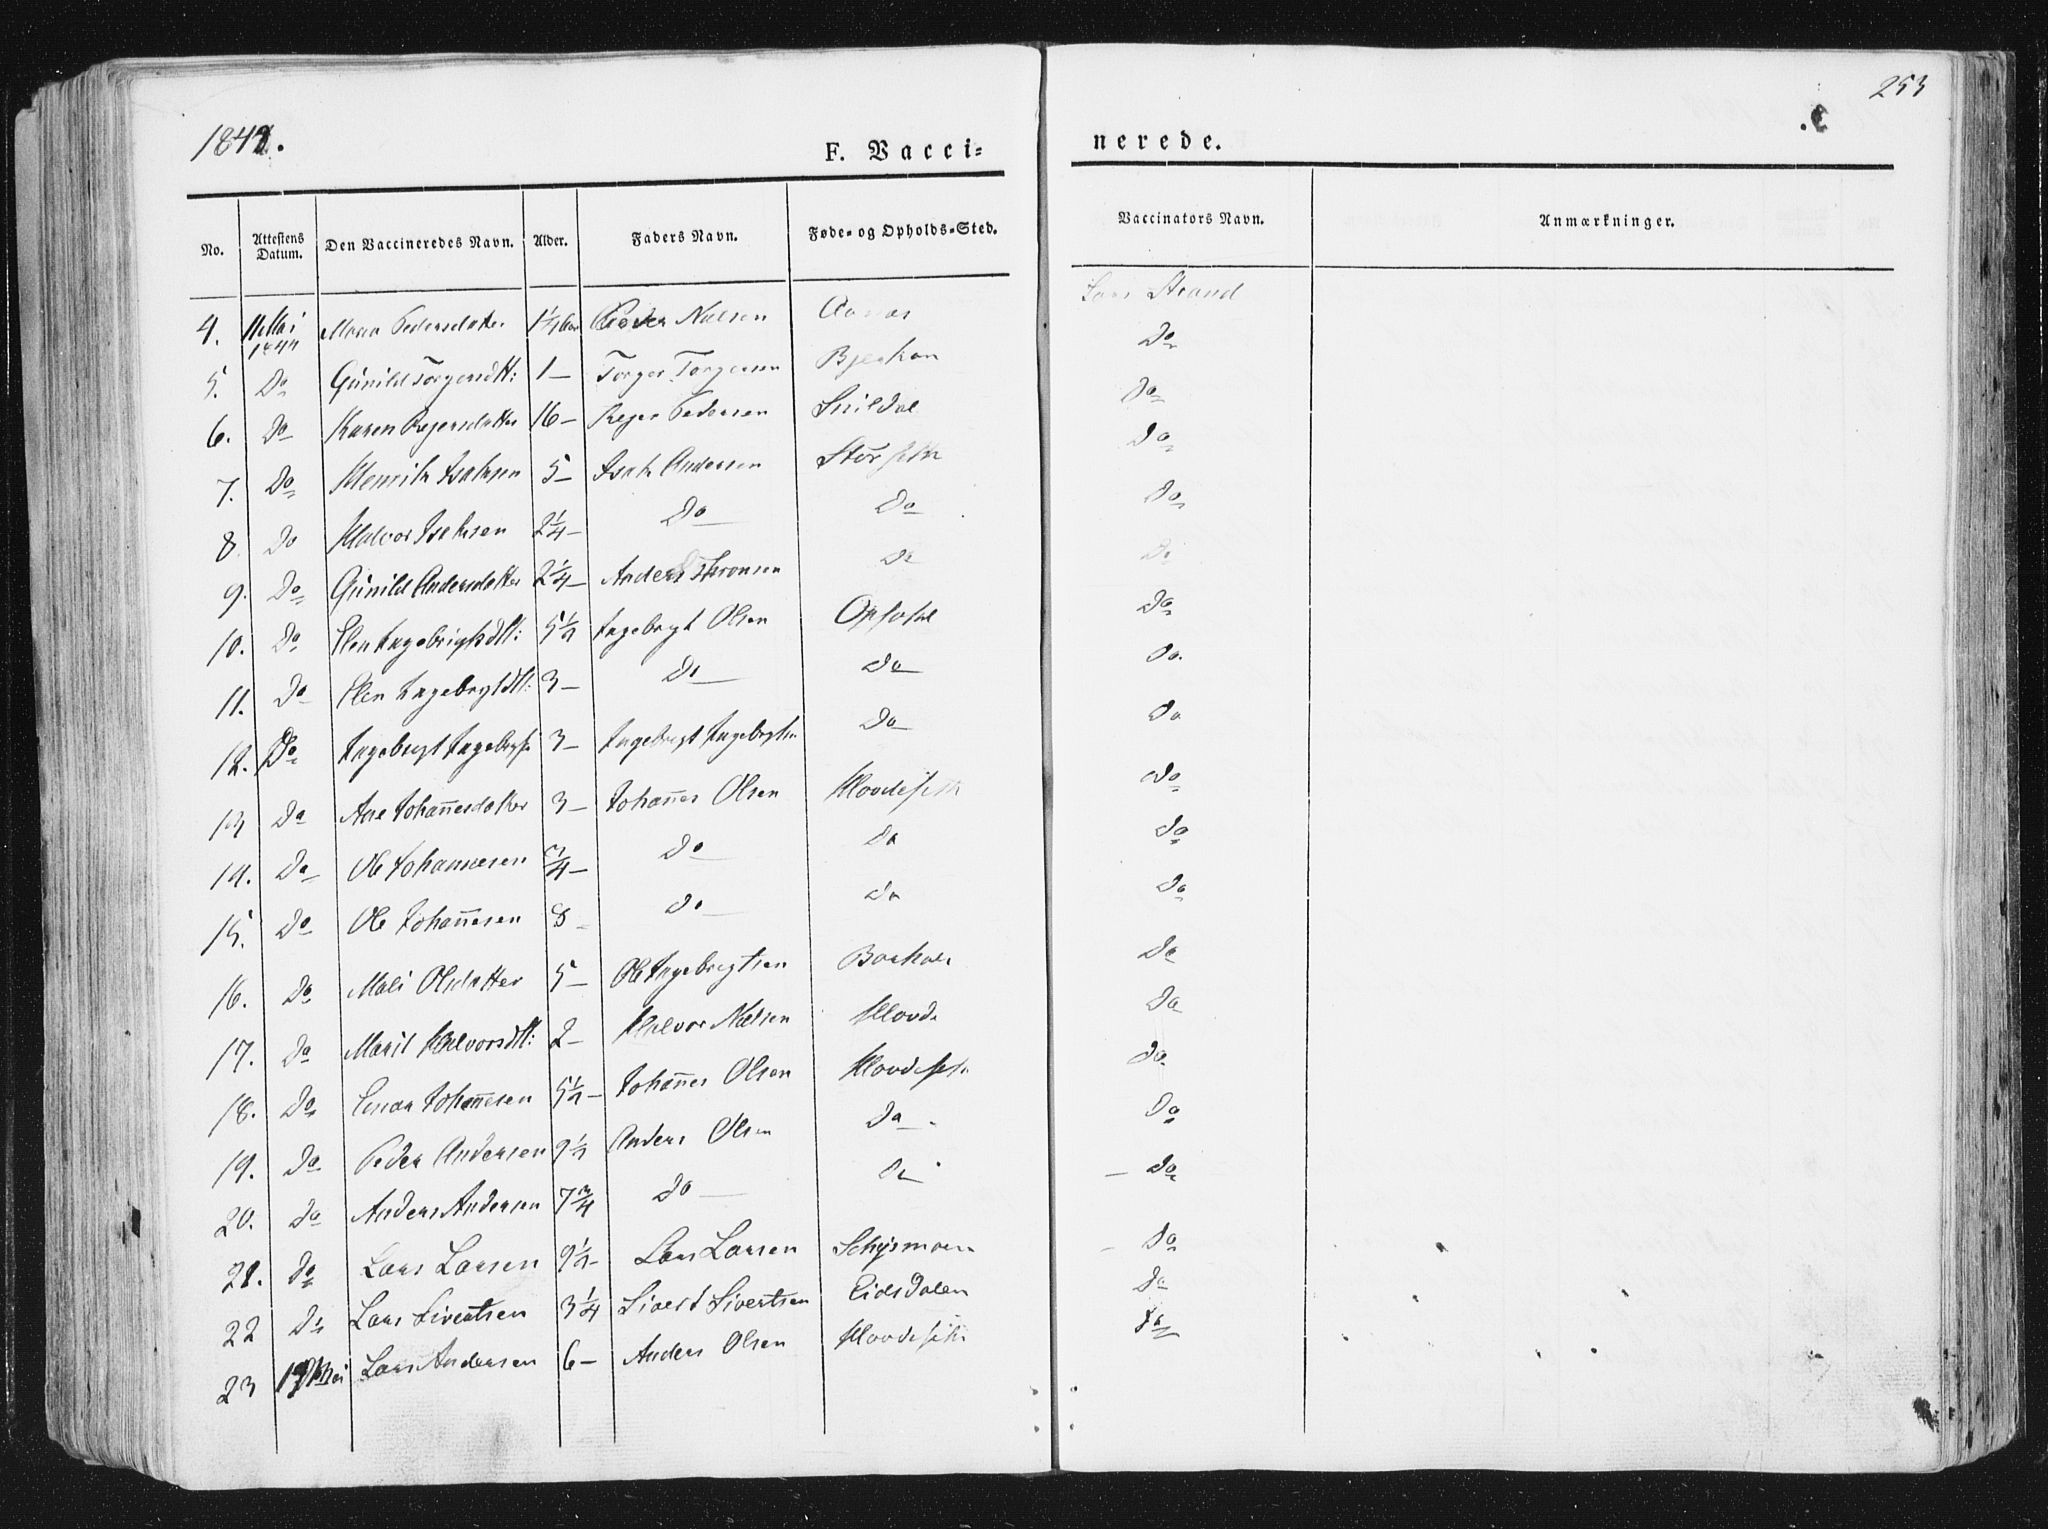 253
1841.
F. Vacci=
nerede.
No. Attestens Datum. Den Vaccineredes Navn. Alder. Faders Navn. Føde- og Opholds-Sted. Vaccinators Navn. Anmærkninger.
4. 11 Mai 1844 Pedersdatter 1½ Aar Peder Nielsen Lars Strand
5. Do Gunild Torgersdtt: 1 — Torger Torgersen Bjerkan Do
6. Do Karen Rejersdatter 16 — Rejer Pedersen Snildal Do
7. Do Henrik Isaksen 5 — Isak Andersen Storseth Do
8 Do Halvor Isaksen 2¼ — Do — Do Do
9. Do Gunild Andersdatter 2¼ — Anders Do Do
10. Do Elen Ingebrigtsdtt: 5½ Ingebrigt Olsen Do
11. Do Elen Ingebrgtdtt: 3 — Do — Do Do.
12. Do Ingebrigt Ingebrgts 3 — Ingebrigt Ingebrgtsn Do Do
13 Do Ane Johan̄esdatter 3 — Johan̄es Olsen Hovdeseth Do
14. Do Ole Johannesen ¾ — Do — Do Do
15. Do Ole Johan̄esen 8 — Do — Do Do
16. Do Mali Olsdatter 5 — Ole Ingebrigtsen Do
17. Do Marit Halvorsdtt: 2 — Halvor Nielsen Hovde Do
18. Do Johan̄esen 5½ — Johan̄es Olsen Hovdeseth Do
19. Do Peder Andersen 9½ Anders Olsen Do — Do
20. Do Anders Andersen 7¾ Do — Do — Do
21. Do Lars Larsen 9½ — Lars Larsen — Do
22 Do Lars Sivertsen 3¼ Sivert Sivertsen Eidsdalen Do
23 Mai Lars Andersen 6 — Anders Olsen Hovdeseth Do